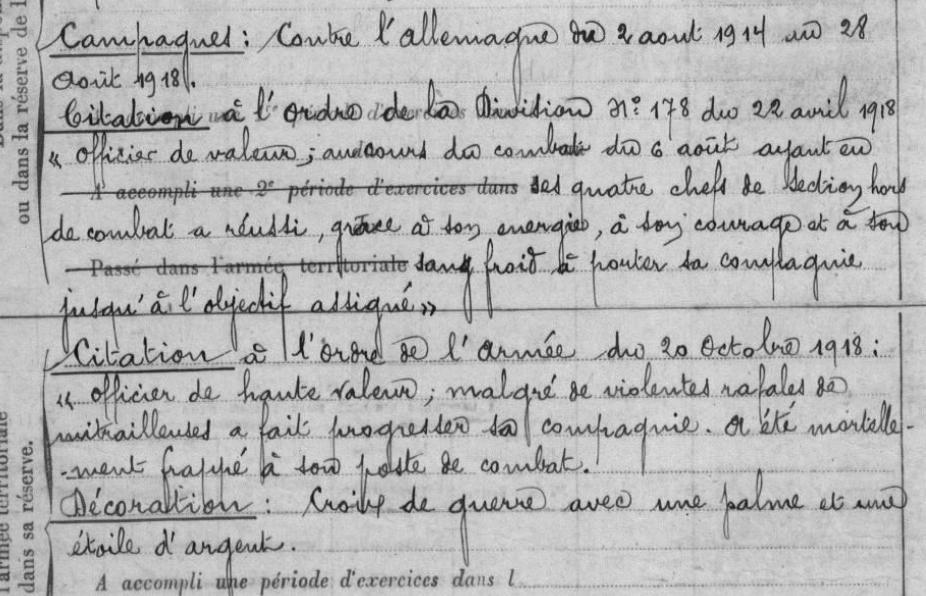 Campagnes : Contre l'allemagne du 2 aout 1914 au 28
Août 1918.
Citation à l'Ordre de la Division N° 178 du 22 avril 1918
« Officier de valeur ; au cours du combat du 6 août ayant eu
A accompli une 2e période d'exercices dans ses quatre chefs de section hors
de combat a réussi, grâce à son energie, à son courage et à son
Passé dans l'armée territoriale sang froid à porter sa compagnie
jusqu'à l'objectif assigné »
Citation à l'ordre de l'Armée du 20 Octobre 1918 :
« officier de haute valeur ; malgré de violentes rafales de
mitrailleuses a fait progresser sa compagnie. A été mortelle-
-ment frappé à son poste de combat.
Décoration : Croix de guerre avec une palme et une
étoile d'argent.
A accompli une période d'exercices dans l
ou dans la réserve de l
l'armée territoriale
dans sa réserve.